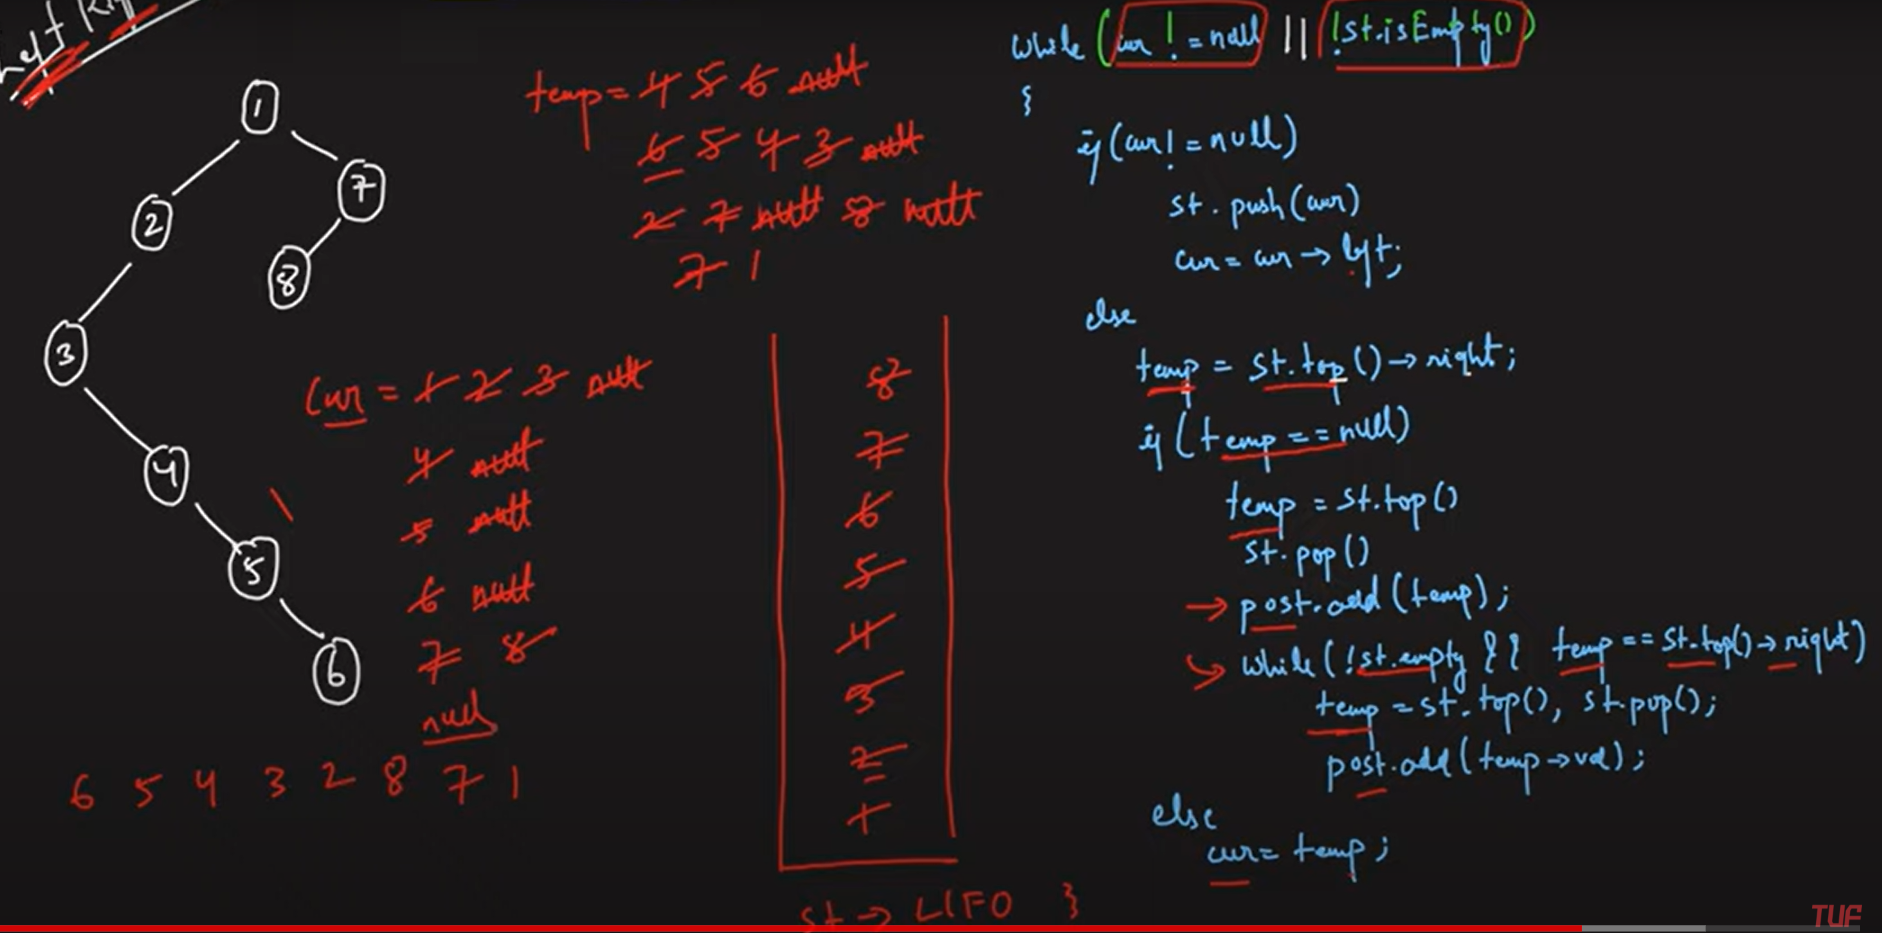 Left Rig
1
2
7
3
8
4
5
6
temp = 4 5 6 null
6 5 4 3 null
2 7 null 8 null
7 1
cur = 1 2 3 null
4 null
5 null
6 null
7 8
null
6 5 4 3 2 8 7 1
8
7
6
5
4
3
2
1
st → LIFO
while (cur != null || !st.isEmpty())
{
if (cur != null)
st.push(cur)
cur = cur → left;
else
temp = st.top() → right;
if (temp == null)
temp = st.top()
st.pop()
→ post.add(temp);
while (!st.empty && temp == st.top() → right)
temp = st.top(), st.pop();
post.add(temp → val);
else
cur = temp;
}
TUF